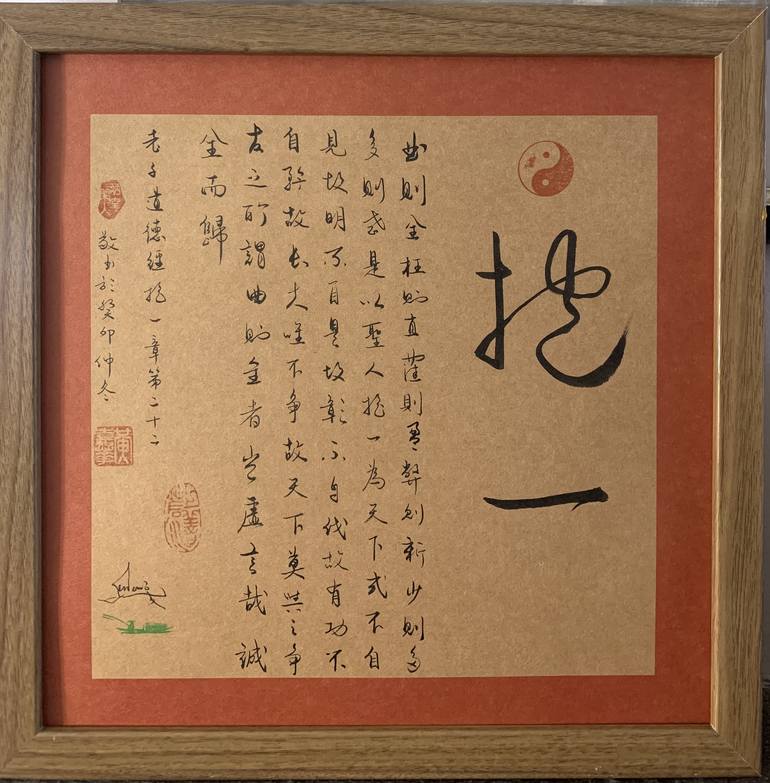 抱一
曲則全枉則直窪則盈弊則新少則得
多則惑是以聖人抱一為天下式不自
見故明不自是故彰不自伐故有功不
自矜故長夫唯不爭故天下莫與之爭
古之所謂曲則全者豈虛言哉誠
全而歸
老子道德經抱一章第二十二
敬書於癸卯仲冬